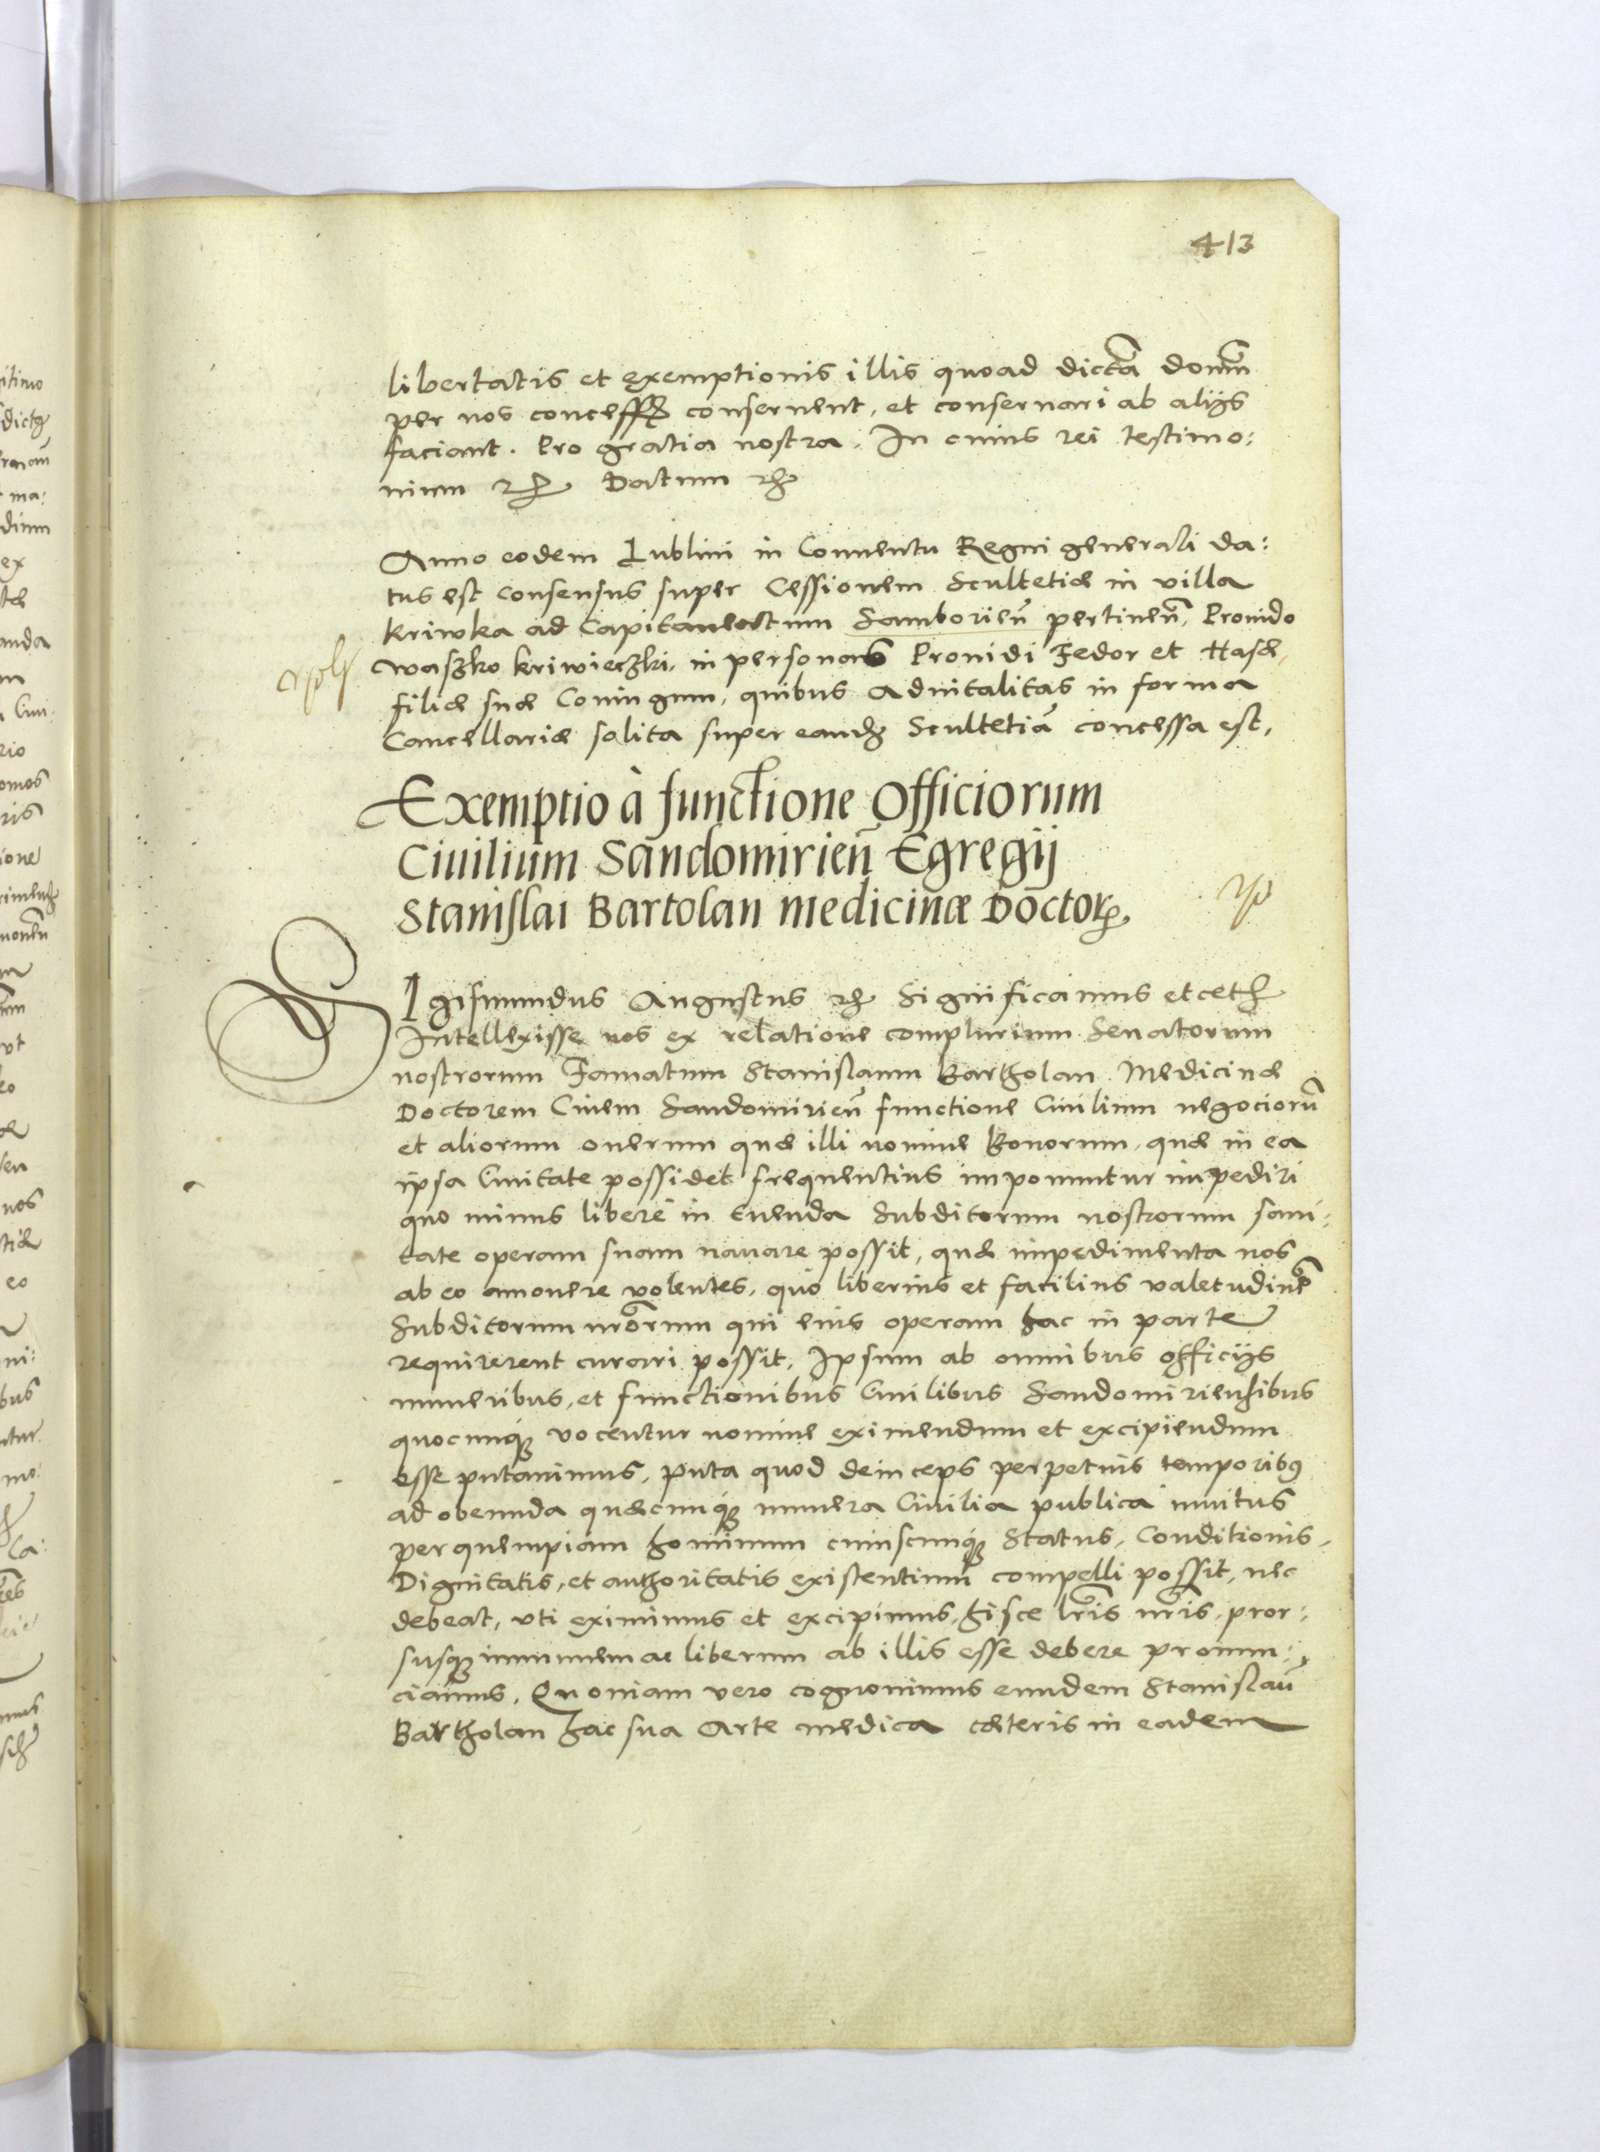 413
libertatis et exemptionis illis quoad dictã domũ
per nos concess conseruent, et conseruari ab alijs
faciant. Pro gratia nostra. In cuius rei testimo:
nium Datum
Anno eodem Lublini in Conuentu Regni generali da:
tus est consensus super Cessionem Scultetiæ in villa
Kriwka ad Capitaneatum Samborieñ pertineñ, Prouido
Waszko Kriwieczki, in personas Prouidi Fedor et Hasæ,
filiæ suæ Coniugum, quibus aduitalitas in forma
Cancellariæ solita super eandẽ Scultetiã concessa est,
Exemptio à functione Officiorum
Ciuilium Sandomirieñ Egregij
Stanislai Bartolan medicinæ Doctor
SIgismundus Augustus Significamus etceter
Intellexisse nos ex relatione complurium Senatorum
nostrorum Famatum Stanislaum Bartholan Medicinæ
Doctorem Ciuem Sandomirieñ functione Ciuilium negociorũ
et aliorum onerum quæ illi nomine Bonorum, quæ in ea
ipsa Ciuitate possidet frequentius imponuntur impediri
quo minus liberè in tuenda Subditorum nostrorum sani:
tate operam suam nauare possit, quæ impedimenta nos
ab eo amouere volentes, quò liberius et facilius valetudinẽ
Subditorum nrõrum qui eius operam hac in parte
requirerent curari possit, Ipsum ab omnibus officijs
muneribus, et functionibus Ciuilibus Sandomiriensibus
quocunque vocentur nomine eximendum et excipiendum
esse putauimus, puta quod deinceps perpetuis temporibus
ad obeunda quæcunque munera Ciuilia publica inuitus
per quempiam hominum cuiuscunque Status, Conditionis,
Dignitatis, et authoritatis existentium compelli possit, nec
debeat, vti eximimus et excipimus, hisce lr̃is nr̃is, pror:
susque immunem ac liberum ab illis esse debere pronun:
ciamus, Quoniam vero cognouimus eundem Stanislaũ
Bartholan hac sua Arte medica cæteris in eadem